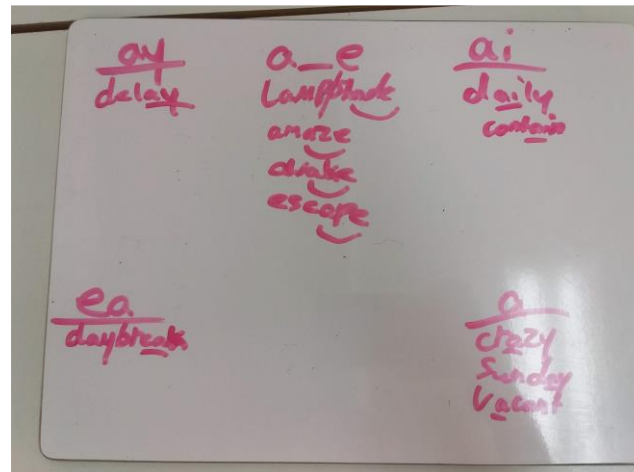 ay
delay
a_e
Lampshade
amaze
awake
escape
ai
daily
contain
ea
daybreak
a
crazy
Sunday
Vacant